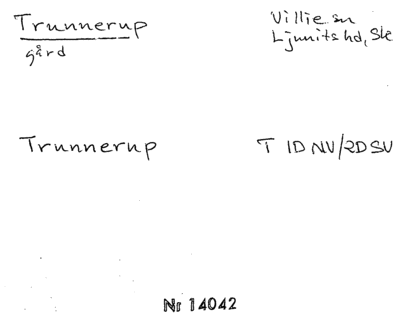 Trunnerup Villie sn
gård Ljunits hd, Skå
Trunnerup T 1D NV/2D SV
Nr 14042